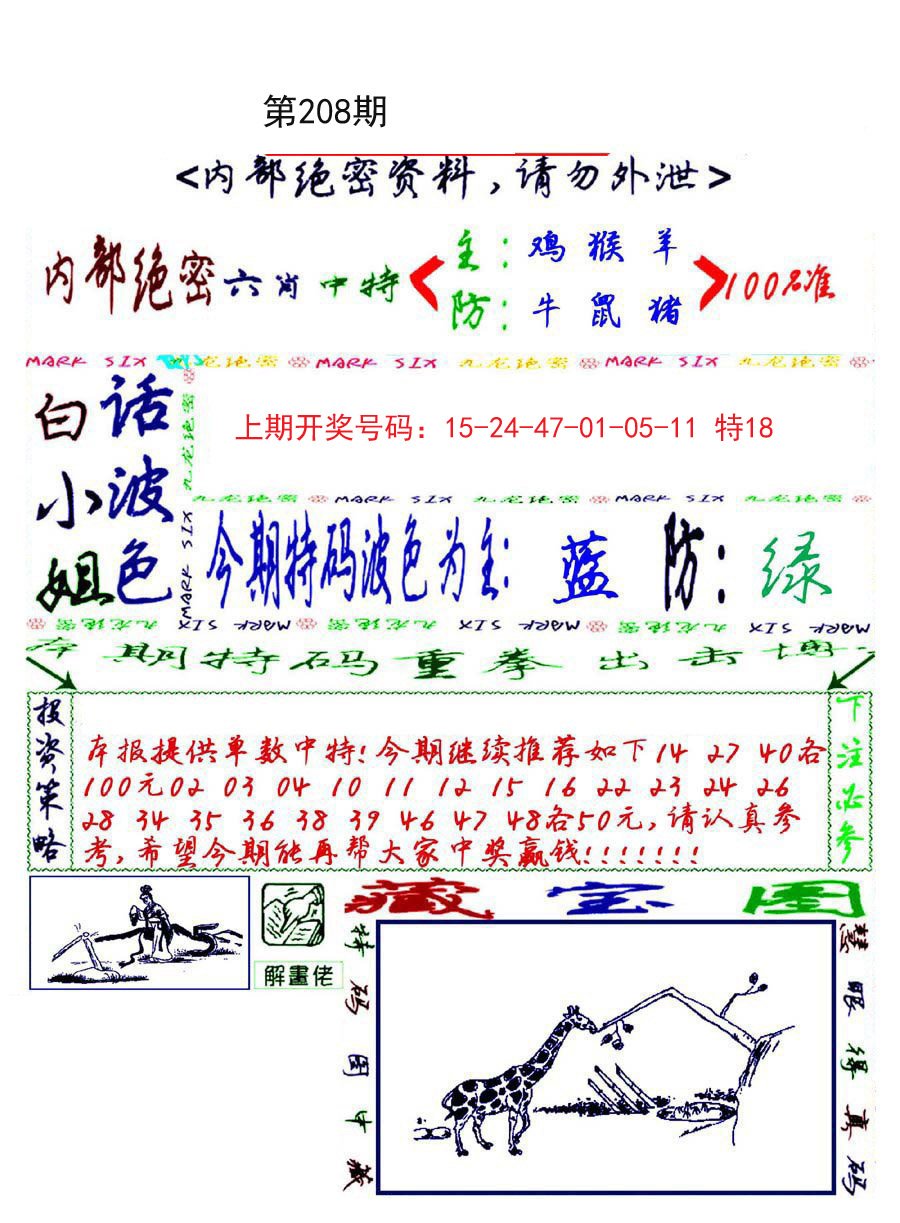 第208期
<内部绝密资料,请勿外泄>
内部绝密六肖中特
主:鸡猴羊
防:牛鼠猪
100%准
MARK SIX 九龙绝密 MARK SIX 九龙绝密 MARK SIX 九龙绝密
九龙绝密
MARK SIX
白小姐
话波色
上期开奖号码：15-24-47-01-05-11 特18
九龙绝密 MARK SIX 九龙绝密 MARK SIX 九龙绝密
今期特码波色为主:蓝 防:绿
九龙绝密 MARK SIX 九龙绝密 MARK SIX 九龙绝密 MARK SIX
本期特码重拳出击博
投资策略
本报提供单数中特!今期继续推荐如下14 27 40各
100元02 03 04 10 11 12 15 16 22 23 24 26
28 34 35 36 38 39 46 47 48各50元,请认真参
考,希望今期能再帮大家中奖赢钱!!!!!!!
下注必参
解畫佬
藏宝图
特码图中藏
慧眼得真码